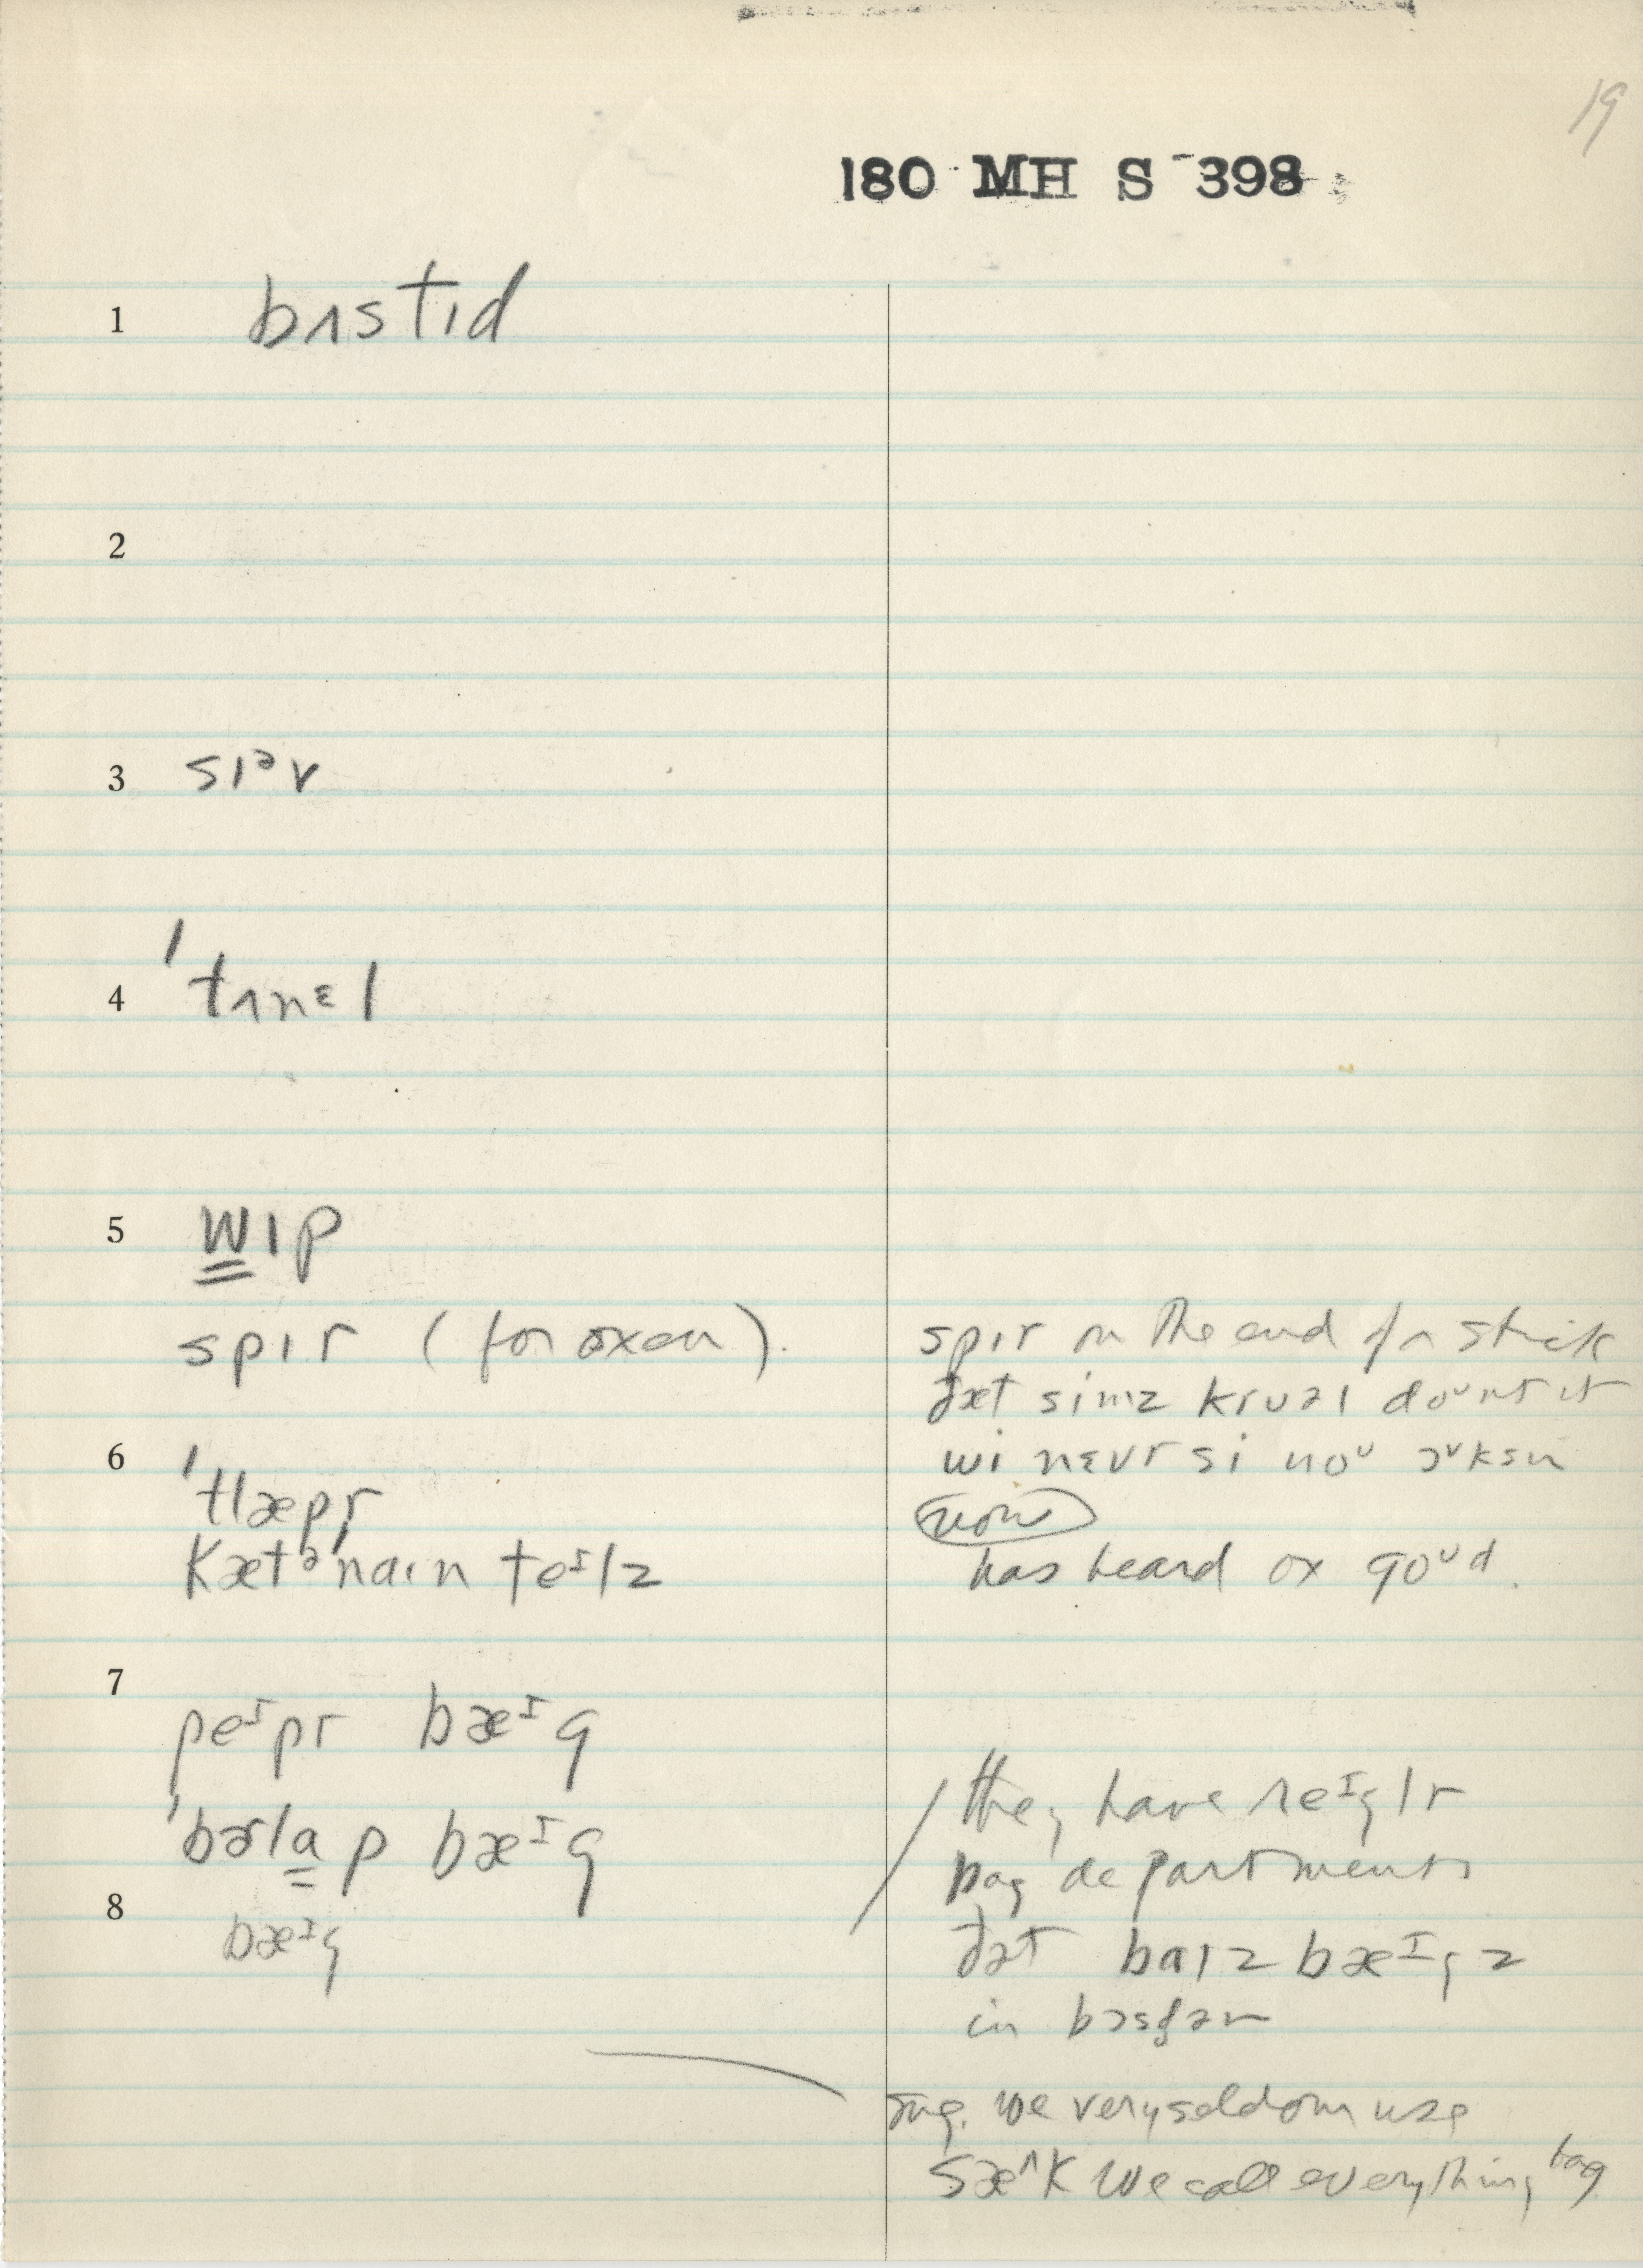 19
180 MH S 398
1 bʌstɪd
2
3 sɪᵊv
4 ˈtʌnɛl
5 w̳ɪp
spɪr (for oxen).
spɪr on the end of a stick
ðæt simz kruəl doᵘnt it
6 ˈflæpr
wi nɛvr si noᵘ ɔᵛksn
now
kætᵊˈnaɪn teᶦlz
has heard ox goᵘd.
7
peᶦpr bæᶦg
they have reᶦglr
ˈbɚla̳p bæᶦg
bag departments
8
bæᶦg
ðət baɪz bæᶦgz
in
sug. we very seldom use
sæ^k we call everything bag